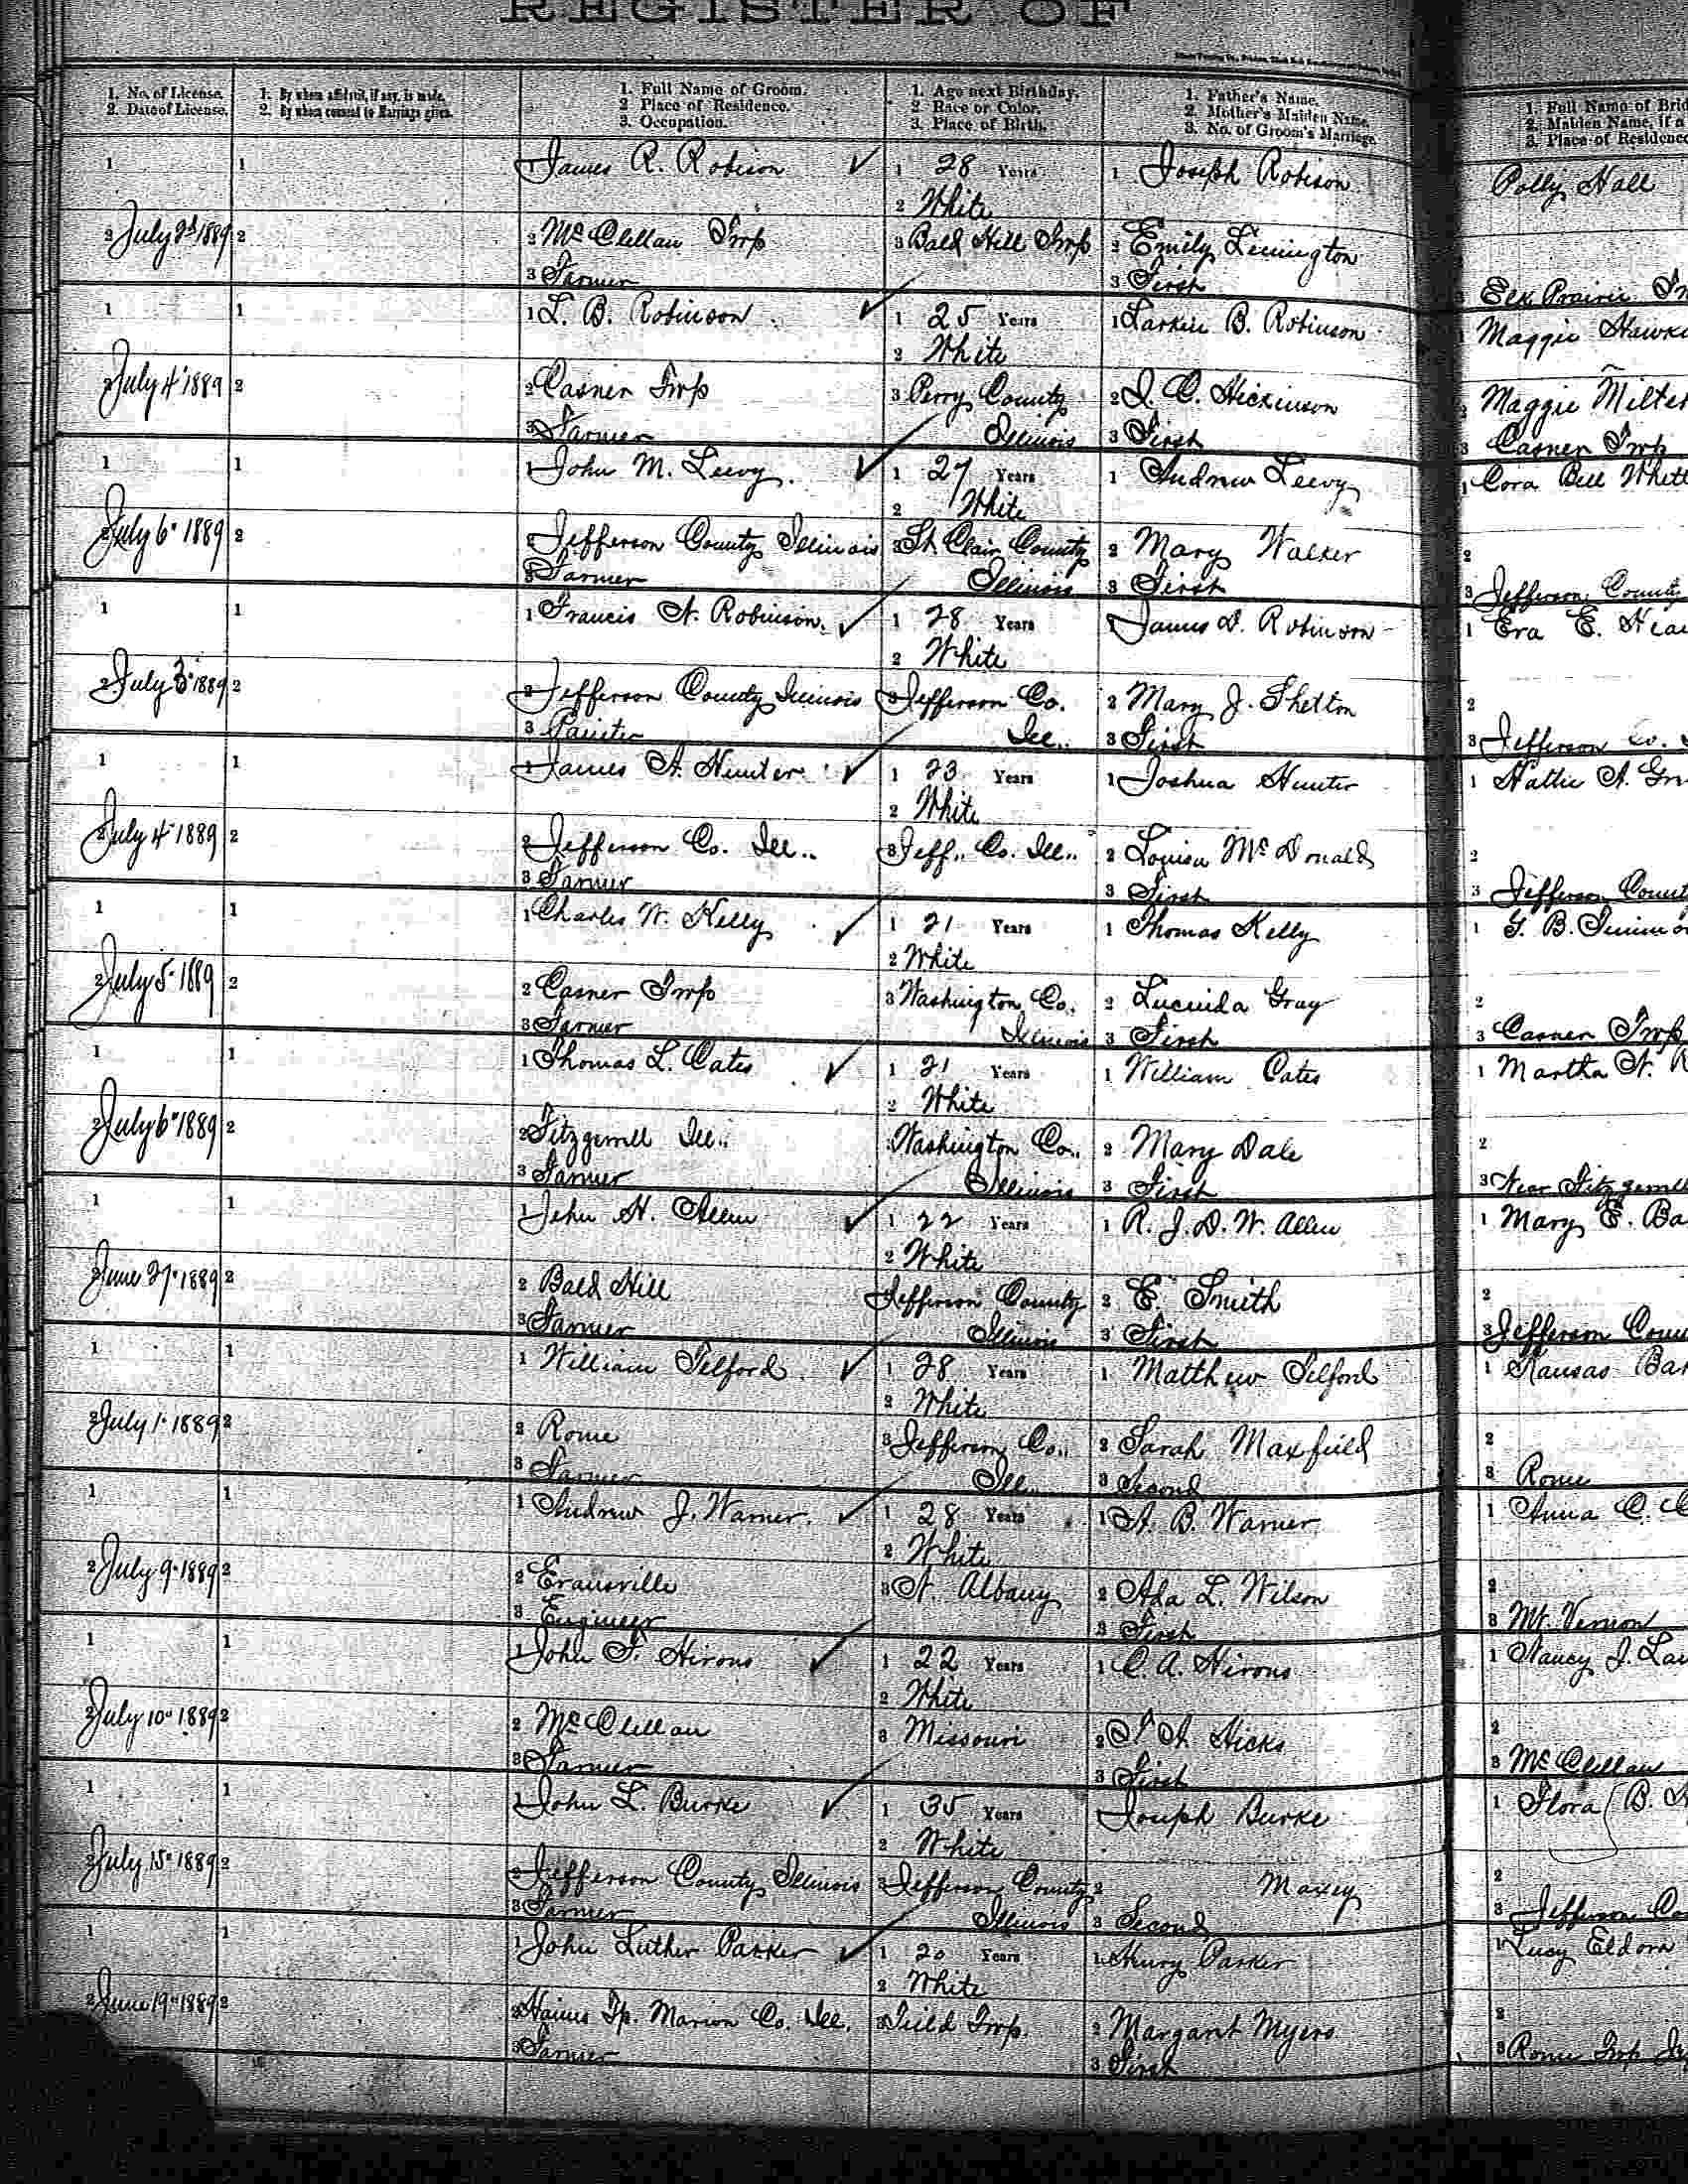 REGISTER OF
1. No. of License.
2. Date of License.
1. By whom affidavit, if any, is made.
2. By whom consent to Marriage given.
1. Full Name of Groom.
2 Place of Residence.
3. Occupation.
1. Age next Birthday.
2. Race or Color.
3. Place of Birth.
1. Father's Name.
2. Mother's Maiden Name.
3. No. of Groom's Marriage.
1. Full Name of Brid
2. Maiden Name, if a
3. Place of Residence
1 1 James R. Robison 1 28 Years 1 Joseph Robison Polly Hall
2 White
2 July 2d 1889 2 2 Mc Clellan Twp 3 Bald Hill Twp 2 Emily
3 Farmer 3 First 3 Elk Prairie
1 1 1 L. B. Robinson 1 25 Years 1 Larkin B. Robinson 1 Maggie
2 White
2 July 4" 1889 2 2 Casner Twp 3 Perry County 2 J. C. Hickinson 2 Maggie
3 Farmer Illinois 3 First 3 Casner Twp
1 1 1 John M. Leevy. 1 27 Years 1 Andrew Leevy 1 Cora Bell
2 White
2 July 6" 1889 2 2 Jefferson County Illinois 3 St Clair County 2 Mary Walker 2
3 Farmer Illinois 3 First 3 Jefferson County
1 1 1 Francis A. Robinson. 1 28 Years 1 James D. Robinson 1 Eva E.
2 White
2 July 3" 1889 2 2 Jefferson County Illinois 3 Jefferson Co. 2 Mary J. Shelton 2
3 Painter Ill.. 3 First 3 Jefferson Co.
1 1 1 James A. Hunter 1 23 Years 1 Joshua Hunter 1 Hattie A.
2 White
2 July 4" 1889 2 2 Jefferson Co. Ill.. 3 Jeff.. Co. Ill.. 2 Louisa Mc Donald 2
3 Farmer 3 First 3 Jefferson
1 1 1 Charles W. Kelly 1 21 Years 1 Thomas Kelly 1 G. B.
2 White
2 July 5" 1889 2 2 Casner Twp 3 Washington Co. 2 Lucinda Gray 2
3 Farmer Illinois 3 First 3 Casner Twp
1 1 1 Thomas L. Cates 1 21 Years 1 William Cates 1 Martha A.
2 White
2 July 6" 1889 2 2 Fitzgerrell Ill.. Washington Co.. 2 Mary Dale 2
3 Farmer Illinois 3 First 3 Near Fitzgerrell
1 1 1 John H. Allen 1 22 Years 1 R. J. D. W. Allen 1 Mary E.
2 White
2 June 27" 1889 2 2 Bald Hill Jefferson County 2 E. Smith 2
3 Farmer Illinois 3 First 3 Jefferson
1 1 1 William Telford 1 28 Years 1 Matthew Telford 1 Kansas
2 White
2 July 1" 1889 2 2 Rome 3 Jefferson Co.. 2 Sarah Maxfield 2
3 Farmer Ill.. 3 Second 3 Rome
1 1 1 Andrew J. Warner. 1 28 Years 1 A. B. Warner 1 Anna C.
2 White
2 July 9" 1889 2 2 Evansville 3 N. Albany 2 Ada L. Wilson 2
3 Engineer 3 First 3 Mt. Vernon
1 1 1 John F. Hirons 1 22 Years 1 C. A. Hirons 1 Nancy J.
2 White
2 July 10" 1889 2 2 Mc Clellan 3 Missouri 2 Hicks 2
3 Farmer 3 First 3 Mc Clellan
1 1 1 John L. Burke 1 35 Years Joseph Burke 1 Flora B.
2 White
2 July 15" 1889 2 2 Jefferson County Illinois 3 Jefferson County 2 Maxey 2
3 Farmer Illinois 3 Second 3 Jefferson
1 1 1 John Luther Parker 1 20 Years 1 Henry Parker 1 Lucy Eldora
2 White
2 June 19" 1889 2 2 Haines Tp. Marion Co. Ill. 3 Field Twp. 2 Margaret Myers 2
3 Farmer 3 First 3 Rome Twp